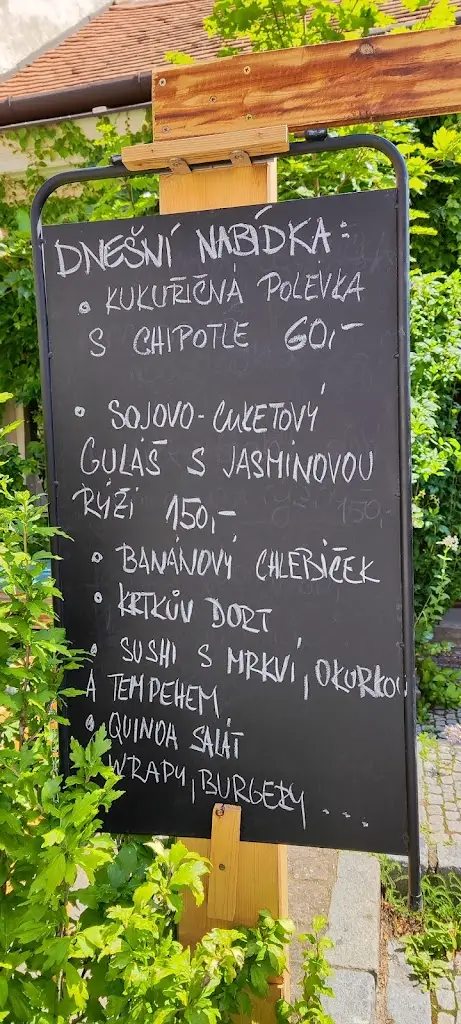 DNEŠNÍ NABÍDKA:
• KUKUŘIČNÁ POLÉVKA
S CHIPOTLE 60,-
• SOJOVO-CUKETOVÝ
GULÁŠ S JASMÍNOVOU
RÝŽÍ 150,-
• BANÁNOVÝ CHLEBÍČEK
• KRTKŮV DORT
• SUSHI S MRKVÍ, OKURKOU
A TEMPEHEM
• QUINOA SALÁT
WRAPY, BURGERY ....